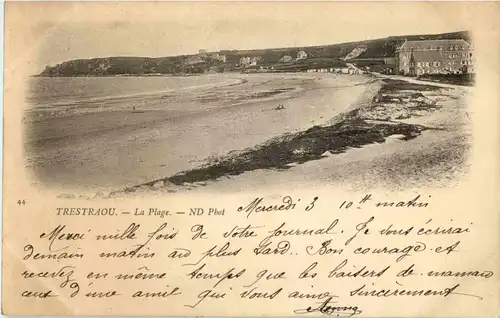 44
TRESTRAOU. — La Plage. — ND Phot
Mercredi 3 10 H matin
Merci mille fois de votre Journal. Je vous écrirai
demain matin au plus tard. Bon courage et
recevez en même temps que les baisers de maman
ceux d'une amie qui vous aime sincèrement